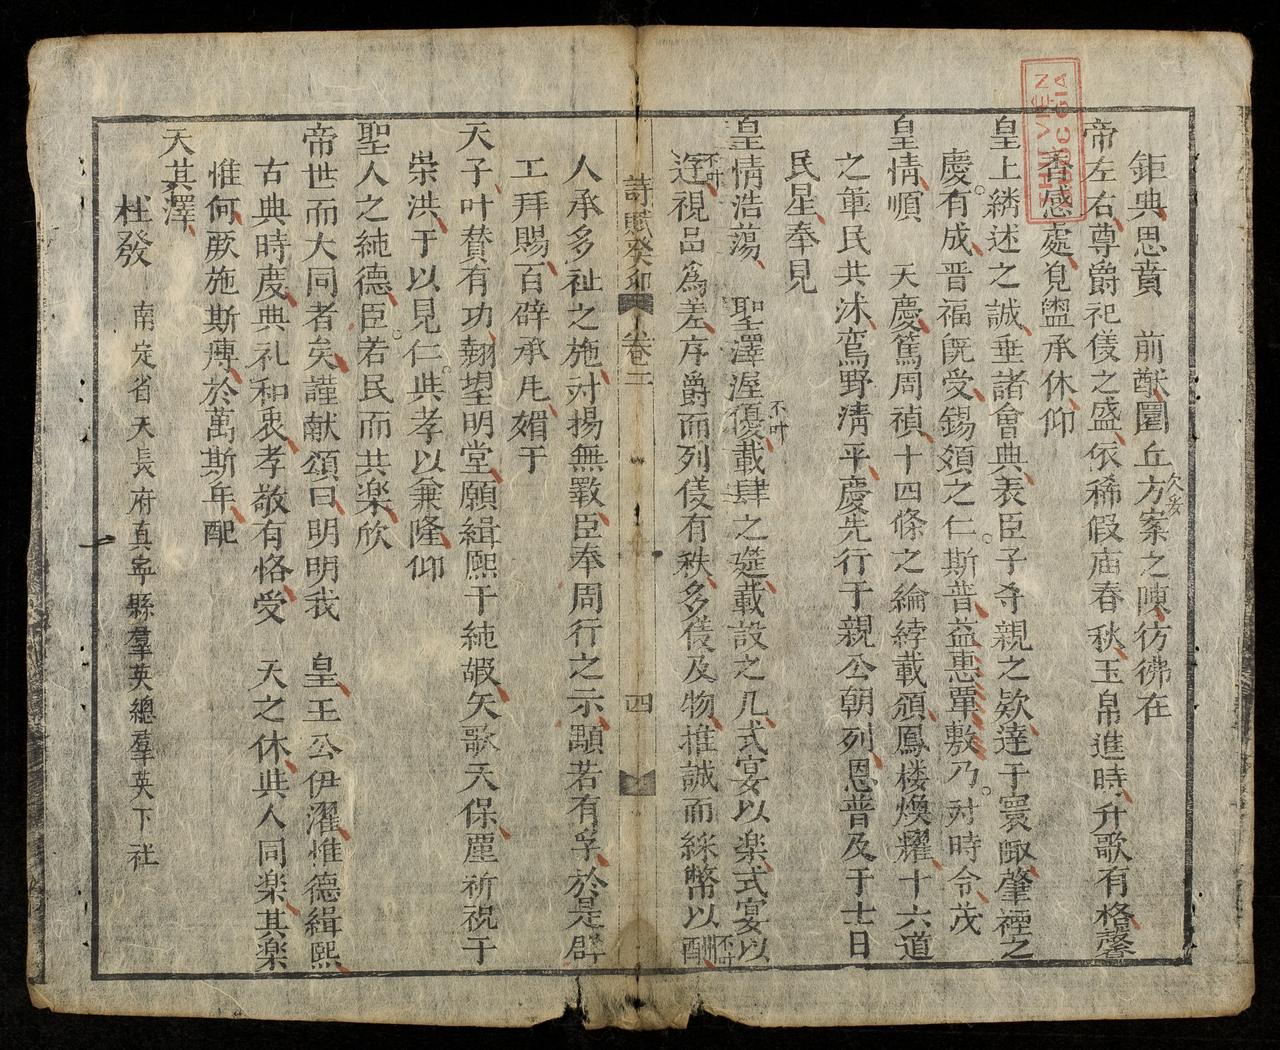 鉅典思賁　前猷圜丘方案之陳彷彿在
欠妥
帝左右尊爵祀儀之盛依稀假庙春秋玉帛進時升歌有格馨
香感處覓盥承休仰
皇上綉述之誠垂諸會典表臣子孝親之欵達于寰陬肇禋之
慶有成晋福旣受錫須之仁斯普益惠覃敷乃对時令茂
皇情順　天慶篤周禎十四條之綸綍載頒鳳楼煥耀十六道
之軍民共沐鸾野清平慶先行于親公朝列恩普及于士日
民星奉見
皇情浩蕩　聖澤渥優載肆之筵載設之几式宴以楽式宴以
不叶
迓視品為差序爵而列儀有秩多儀及物推誠而綵幣以酬
不叶
不叶
詩賦癸卯　卷二　四
人承多祉之施对揚無斁臣奉周行之示顒若有孚於是辟
工拜賜百辟承庑媚于
天子叶賛有功翹望明堂願緝熙于純嘏矢歌天保塵祈祝于
崇洪于以見仁典孝以兼隆仰
聖人之純德臣若民而共楽欣
帝世而大同者矣謹献頌曰明明我　皇王公伊濯惟德緝熙
古典時度典礼和衷孝敬有恪受　天之休典人同楽其楽
惟何厥施斯溥於萬斯年配
天其澤
杜發　南定省天長府真寧縣羣英總羣英下社
THƯ VIỆN
QUỐC GIA